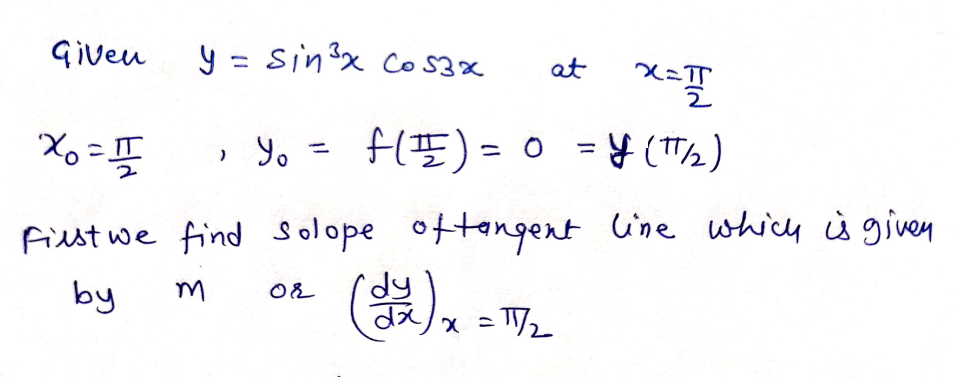 Given y = sin³x cos3x at x=π/2
x₀ = π/2 , y₀ = f(π/2) = 0 = y(π/2)
First we find solope of tangent line which is given
by m or (dy/dx) x = π/2